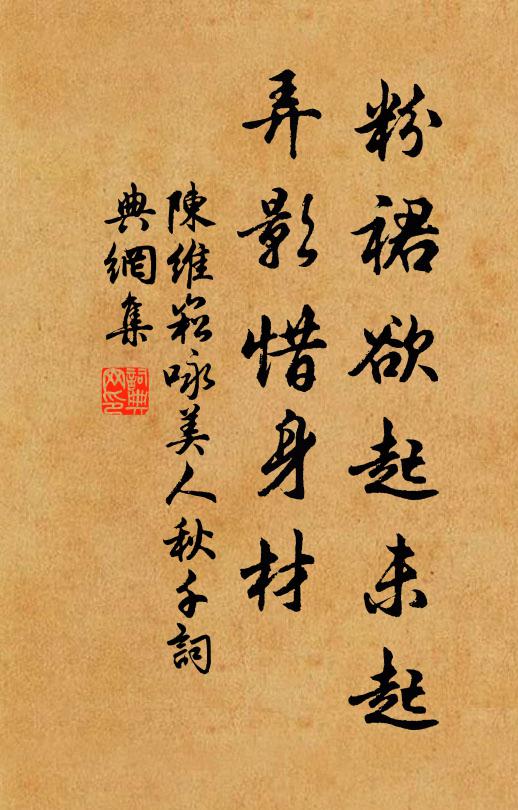 粉裙欲起未起
弄影惜身材
陳維崧咏美人秋千詞
典網集
詞典網印